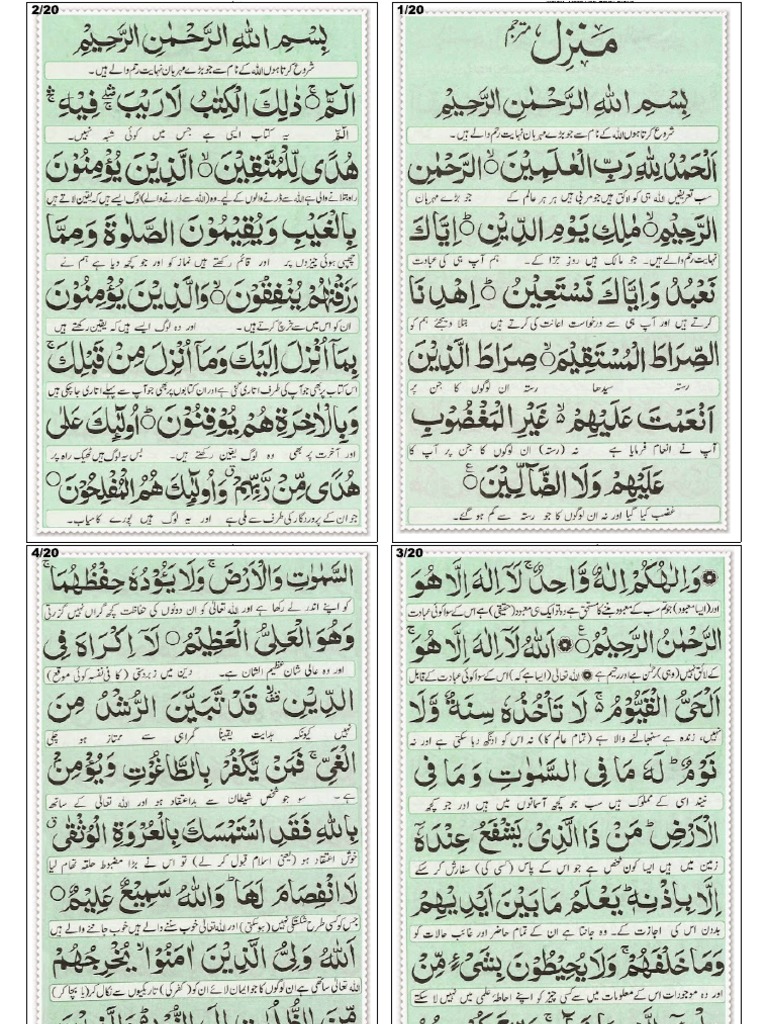 1/20
مَنزِل مترجم
بِسْمِ اللهِ الرَّحْمٰنِ الرَّحِيْمِ
شروع کرتا ہوں اللہ کے نام سے جو بڑے مہربان نہایت رحم والے ہیں۔
اَلْحَمْدُ لِلّٰهِ رَبِّ الْعٰلَمِيْنَ ۙ الرَّحْمٰنِ
سب تعریفیں اللہ ہی کو لائق ہیں جو مربی ہیں ہر ہر عالم کے جو بڑے مہربان
الرَّحِيْمِ ۙ مٰلِكِ يَوْمِ الدِّيْنِ ؕ اِيَّاكَ
نہایت رحم والے ہیں۔ جو مالک ہیں روز جزا کے۔ ہم آپ ہی کی عبادت
نَعْبُدُ وَاِيَّاكَ نَسْتَعِيْنُ ؕ اِهْدِنَا
کرتے ہیں اور آپ ہی سے درخواست اعانت کی کرتے ہیں بتلا دیجئے ہم کو
الصِّرَاطَ الْمُسْتَقِيْمَ ۙ صِرَاطَ الَّذِيْنَ
رستہ سیدھا رستہ ان لوگوں کا جن پر
اَنْعَمْتَ عَلَيْهِمْ ۙ غَيْرِ الْمَغْضُوْبِ
آپ نے انعام فرمایا ہے نہ (رستہ) ان لوگوں کا جن پر آپ کا
عَلَيْهِمْ وَلَا الضَّآلِّيْنَ
غضب کیا گیا اور نہ ان لوگوں کا جو رستہ سے گم ہو گئے۔
2/20
بِسْمِ اللهِ الرَّحْمٰنِ الرَّحِيْمِ
شروع کرتا ہوں اللہ کے نام سے جو بڑے مہربان نہایت رحم والے ہیں۔
الٓمّٓ ۚ ذٰلِكَ الْكِتٰبُ لَا رَيْبَ ۛ فِيْهِ ۛ
الٓمّٓ یہ کتاب ایسی ہے جس میں کوئی شبہ نہیں۔
هُدًى لِّلْمُتَّقِيْنَ ۙ الَّذِيْنَ يُؤْمِنُوْنَ
راہ بتلانے والی ہے اللہ سے ڈرنے والوں کے لیے۔ وہ (اللہ سے ڈرنے والے) لوگ ایسے ہیں کہ یقین لاتے ہیں
بِالْغَيْبِ وَيُقِيْمُوْنَ الصَّلٰوةَ وَمِمَّا
چھپی ہوئی چیزوں پر اور قائم رکھتے ہیں نماز کو اور جو کچھ دیا ہے ہم نے
رَزَقْنٰهُمْ يُنْفِقُوْنَ ۙ وَالَّذِيْنَ يُؤْمِنُوْنَ
ان کو اس میں سے خرچ کرتے ہیں۔ اور وہ لوگ ایسے ہیں کہ یقین رکھتے ہیں
بِمَآ اُنْزِلَ اِلَيْكَ وَمَآ اُنْزِلَ مِنْ قَبْلِكَ ۚ
اس کتاب پر بھی جو آپ کی طرف اتاری گئی ہے اور ان کتابوں پر بھی جو آپ سے پہلے اتاری جا چکی ہیں
وَبِالْاٰخِرَةِ هُمْ يُوْقِنُوْنَ ؕ اُولٰٓئِكَ عَلٰى
اور آخرت پر بھی وہ لوگ یقین رکھتے ہیں۔ بس یہ لوگ ہیں ٹھیک راہ پر
هُدًى مِّنْ رَّبِّهِمْ ۗ وَاُولٰٓئِكَ هُمُ الْمُفْلِحُوْنَ
جو ان کے پروردگار کی طرف سے ملی ہے اور یہ لوگ ہیں پورے کامیاب۔
3/20
وَاِلٰهُكُمْ اِلٰهٌ وَّاحِدٌ ۚ لَآ اِلٰهَ اِلَّا هُوَ
اور (ایسا معبود) جو تم سب کے معبود بننے کا مستحق ہے وہ تو ایک ہی معبود (حقیقی) ہے اس کے سوا کوئی عبادت
الرَّحْمٰنُ الرَّحِيْمُ ۚ اَللهُ لَآ اِلٰهَ اِلَّا هُوَ ۚ
کے لائق نہیں (وہی) رحمٰن ہے اور رحیم ہے اللہ تعالیٰ (ایسا ہے کہ) اس کے سوا کوئی عبادت کے قابل
اَلْحَيُّ الْقَيُّوْمُ ۚ لَا تَاْخُذُهٗ سِنَةٌ وَّلَا
نہیں، زندہ ہے سنبھالنے والا ہے (تمام عالم کا) نہ اس کو اونگھ دبا سکتی ہے اور نہ
نَوْمٌ ؕ لَهٗ مَا فِى السَّمٰوٰتِ وَمَا فِى
نیند اسی کے مملوک ہیں سب جو کچھ آسمانوں میں ہیں اور جو کچھ
الْاَرْضِ ؕ مَنْ ذَا الَّذِىْ يَشْفَعُ عِنْدَهٗٓ
زمین میں ہیں ایسا کون شخص ہے جو اس کے پاس (کسی کی) سفارش کر سکے
اِلَّا بِاِذْنِهٖ ؕ يَعْلَمُ مَا بَيْنَ اَيْدِيْهِمْ
بدون اس کی اجازت کے۔ وہ جانتا ہے ان کے تمام حاضر اور غائب حالات کو
وَمَا خَلْفَهُمْ ۚ وَلَا يُحِيْطُوْنَ بِشَىْءٍ مِّنْ
اور وہ موجودات اس کے معلومات میں سے کسی چیز کو اپنے احاطۂ علمی میں نہیں لا سکتے
4/20
السَّمٰوٰتِ وَالْاَرْضَ ۚ وَلَا يَـُٔوْدُهٗ حِفْظُهُمَا ۚ
کو اپنے اندر لے رکھا ہے اور اللہ تعالیٰ کو ان دونوں کی حفاظت کچھ گراں نہیں گزرتی
وَهُوَ الْعَلِىُّ الْعَظِيْمُ لَآ اِكْرَاهَ فِى
اور وہ عالی شان عظیم الشان ہے۔ دین میں زبردستی (کا فی نفسہ کوئی موقع)
الدِّيْنِ ۙ قَدْ تَّبَيَّنَ الرُّشْدُ مِنَ
نہیں کیونکہ ہدایت یقیناً گمراہی سے ممتاز ہو چکی
الْغَىِّ ۚ فَمَنْ يَّكْفُرْ بِالطَّاغُوْتِ وَيُؤْمِنْ
ہے۔ سو جو شخص شیطان سے بداعتقاد ہو اور اللہ تعالیٰ کے ساتھ
بِاللهِ فَقَدِ اسْتَمْسَكَ بِالْعُرْوَةِ الْوُثْقٰى ۗ
خوش اعتقاد ہو (یعنی اسلام قبول کر لے) تو اس نے بڑا مضبوط حلقہ تھام لیا
لَا انْفِصَامَ لَهَا ؕ وَاللهُ سَمِيْعٌ عَلِيْمٌ
جس کو کسی طرح شکستگی نہیں (ہو سکتی) اور اللہ تعالیٰ خوب سننے والے ہیں خوب جاننے والے ہیں
اَللهُ وَلِىُّ الَّذِيْنَ اٰمَنُوْا ۙ يُخْرِجُهُمْ
اللہ تعالیٰ ساتھی ہے ان لوگوں کا جو ایمان لائے ان کو (کفر کی) تاریکیوں سے نکال کر (یا بچا کر)